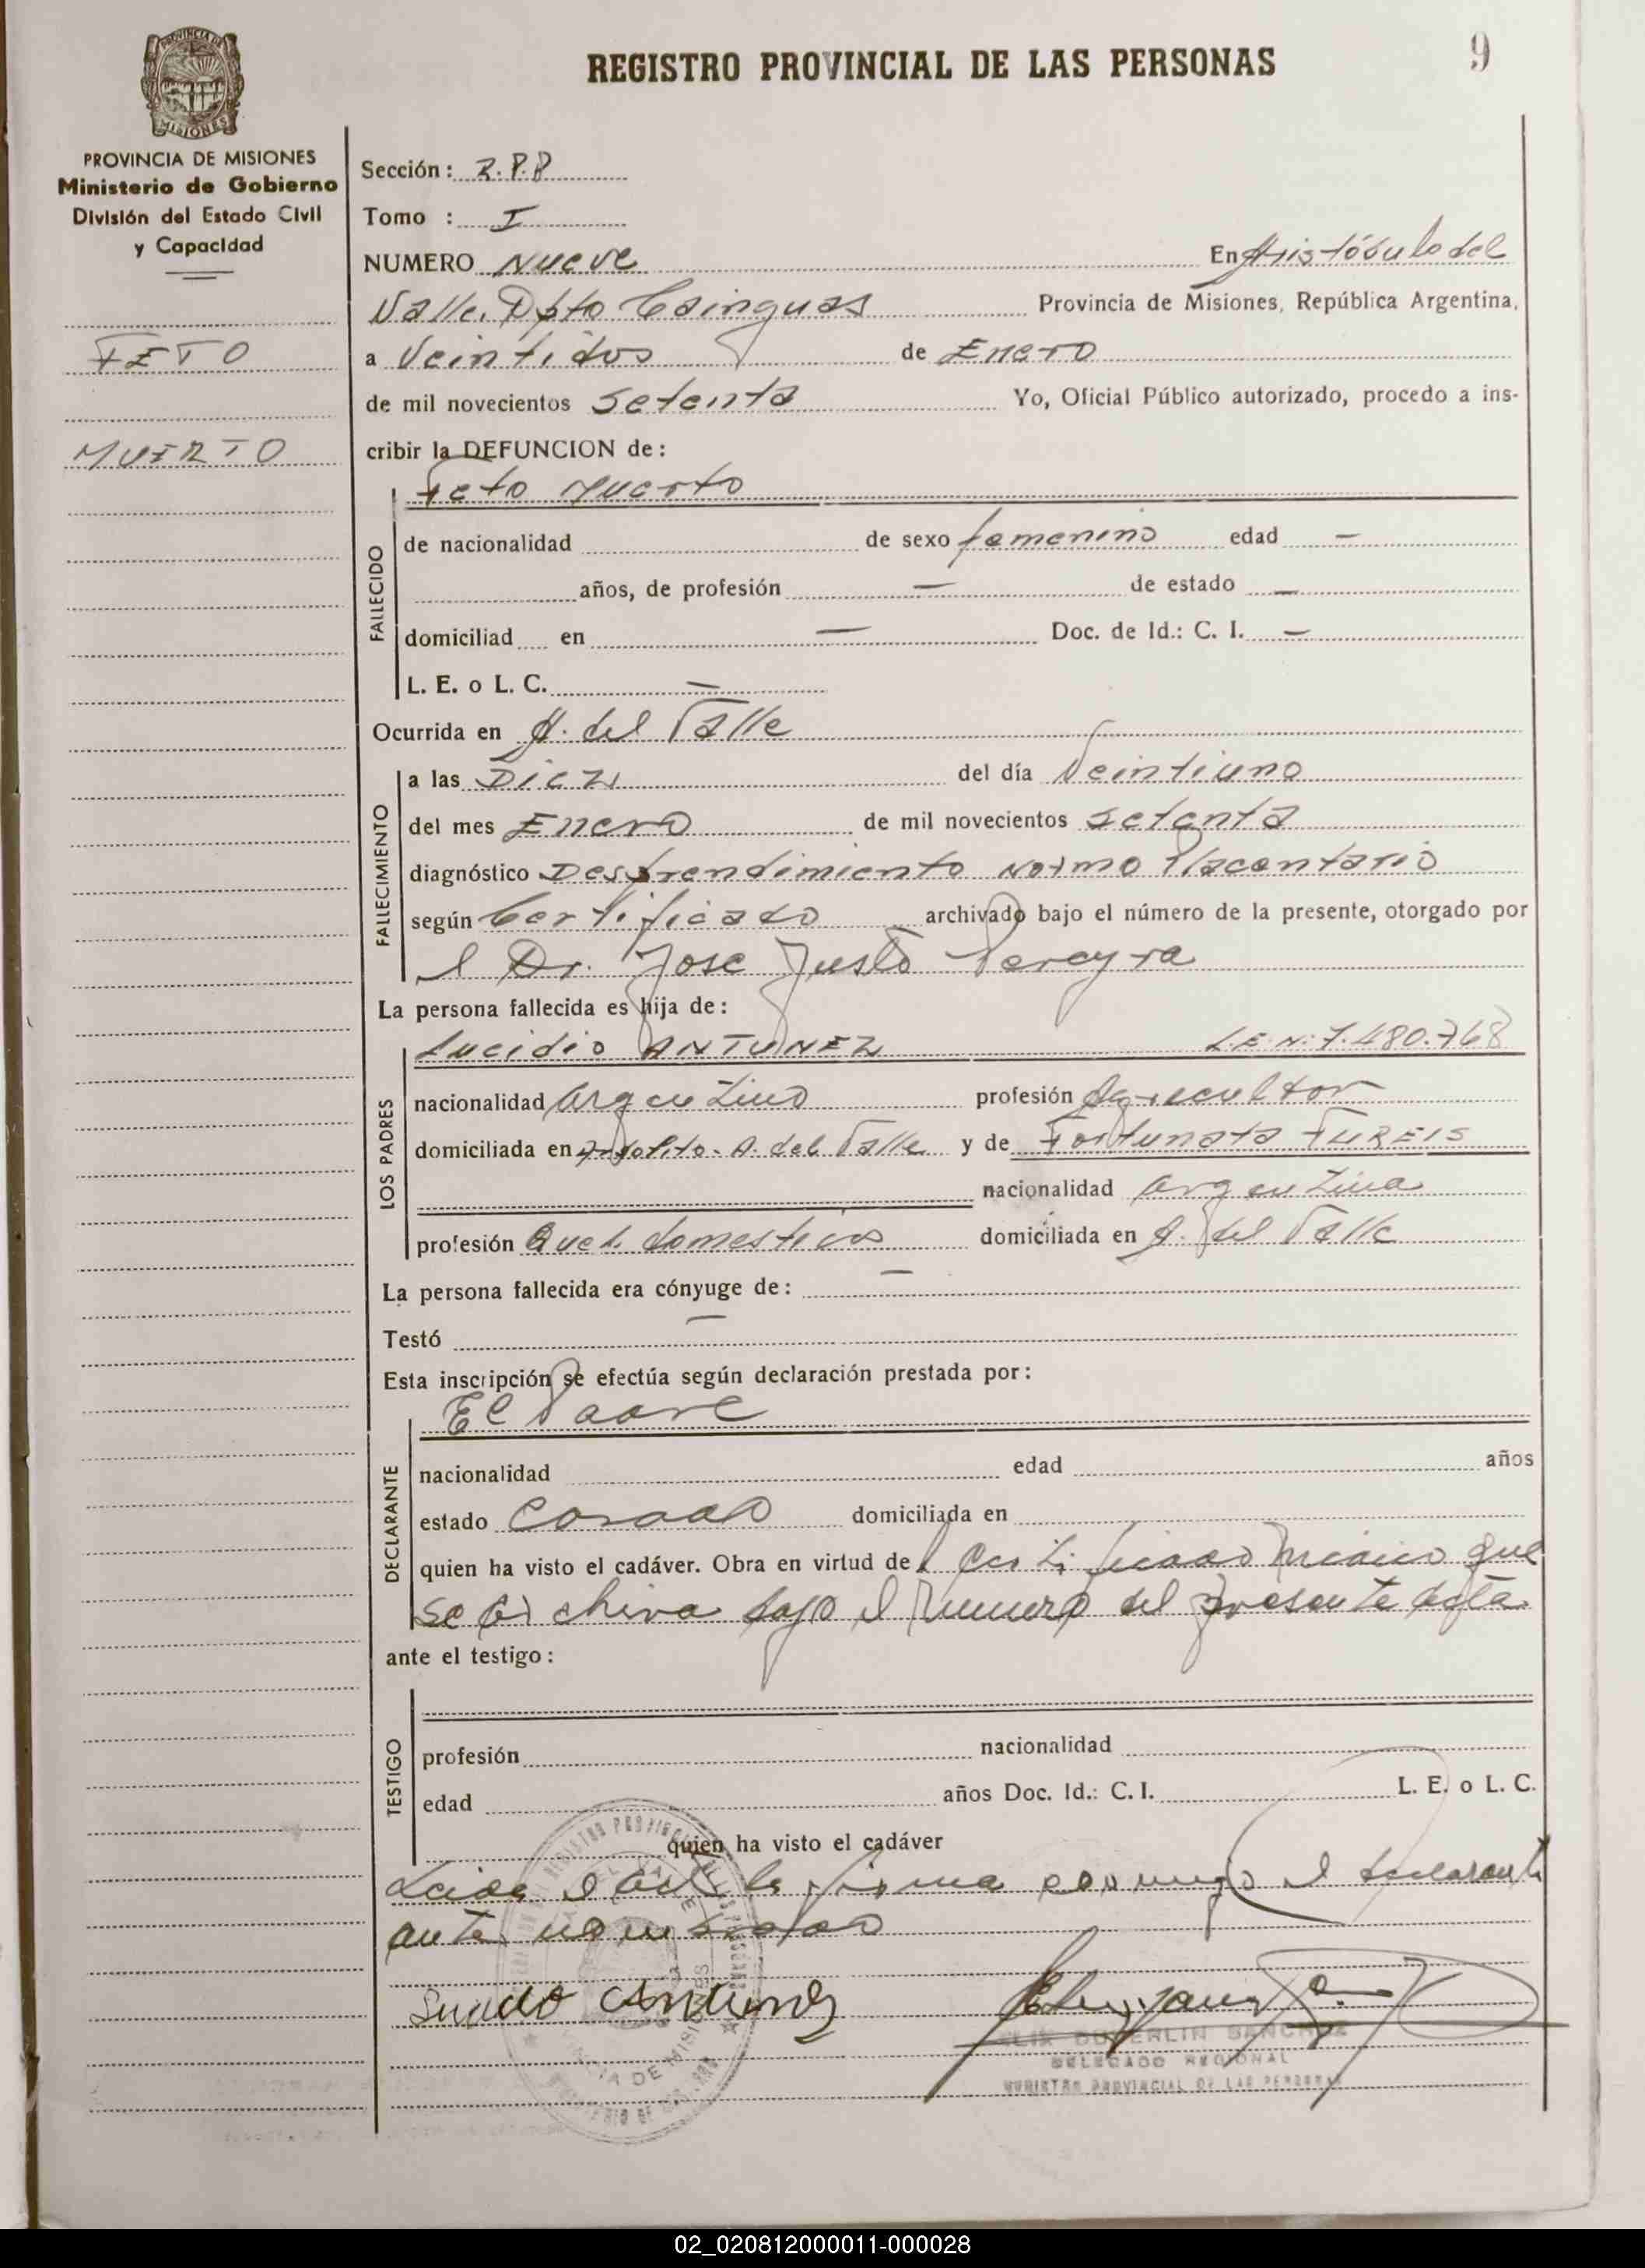 REGISTRO PROVINCIAL DE LAS PERSONAS
9
PROVINCIA DE MISIONES
Ministerio de Gobierno
División del Estado Civil
y Capacidad
FETO
MUERTO
Sección: R.P.P
Tomo : I
NUMERO Nueve En Aristóbulo del
Valle. Dpto Cainguas Provincia de Misiones, República Argentina,
a Veintidos de Enero
de mil novecientos Setenta Yo, Oficial Público autorizado, procedo a ins-
cribir la DEFUNCION de:
Feto Muerto
FALLECIDO
de nacionalidad de sexo femenino edad —
años, de profesión — de estado —
domiciliad en — Doc. de Id.: C. I. —
L. E. o L. C. —
Ocurrida en A. del Valle
FALLECIMIENTO
a las Diez del día Veintiuno
del mes Enero de mil novecientos Setenta
diagnóstico Desprendimiento Normo Placentario
según Certificado archivado bajo el número de la presente, otorgado por
el Dr. Jose Justo Pereyra
La persona fallecida es hija de:
LOS PADRES
Lucidio ANTUNEZ L.E.N: 7.480.768
nacionalidad argentino profesión Agricultor
domiciliada en A. del Valle y de Fortunata FUREIS
nacionalidad argentina
profesión Queh. domesticos domiciliada en A. del Valle
La persona fallecida era cónyuge de: —
Testó —
Esta inscripción se efectúa según declaración prestada por:
DECLARANTE
El Padre
nacionalidad edad años
estado Casado domiciliada en
quien ha visto el cadáver. Obra en virtud del Certificado médico que
se archiva bajo el Numero del presente acta
ante el testigo:
TESTIGO
profesión nacionalidad
edad años Doc. Id.: C. I. L. E. o L. C.
quien ha visto el cadáver
Leida el acta la firma conmigo el declarante
ante
Antunez
SANCHEZ
DELEGADO REGIONAL
REGISTRO PROVINCIAL DE LAS PERSONAS
02_020812000011-000028